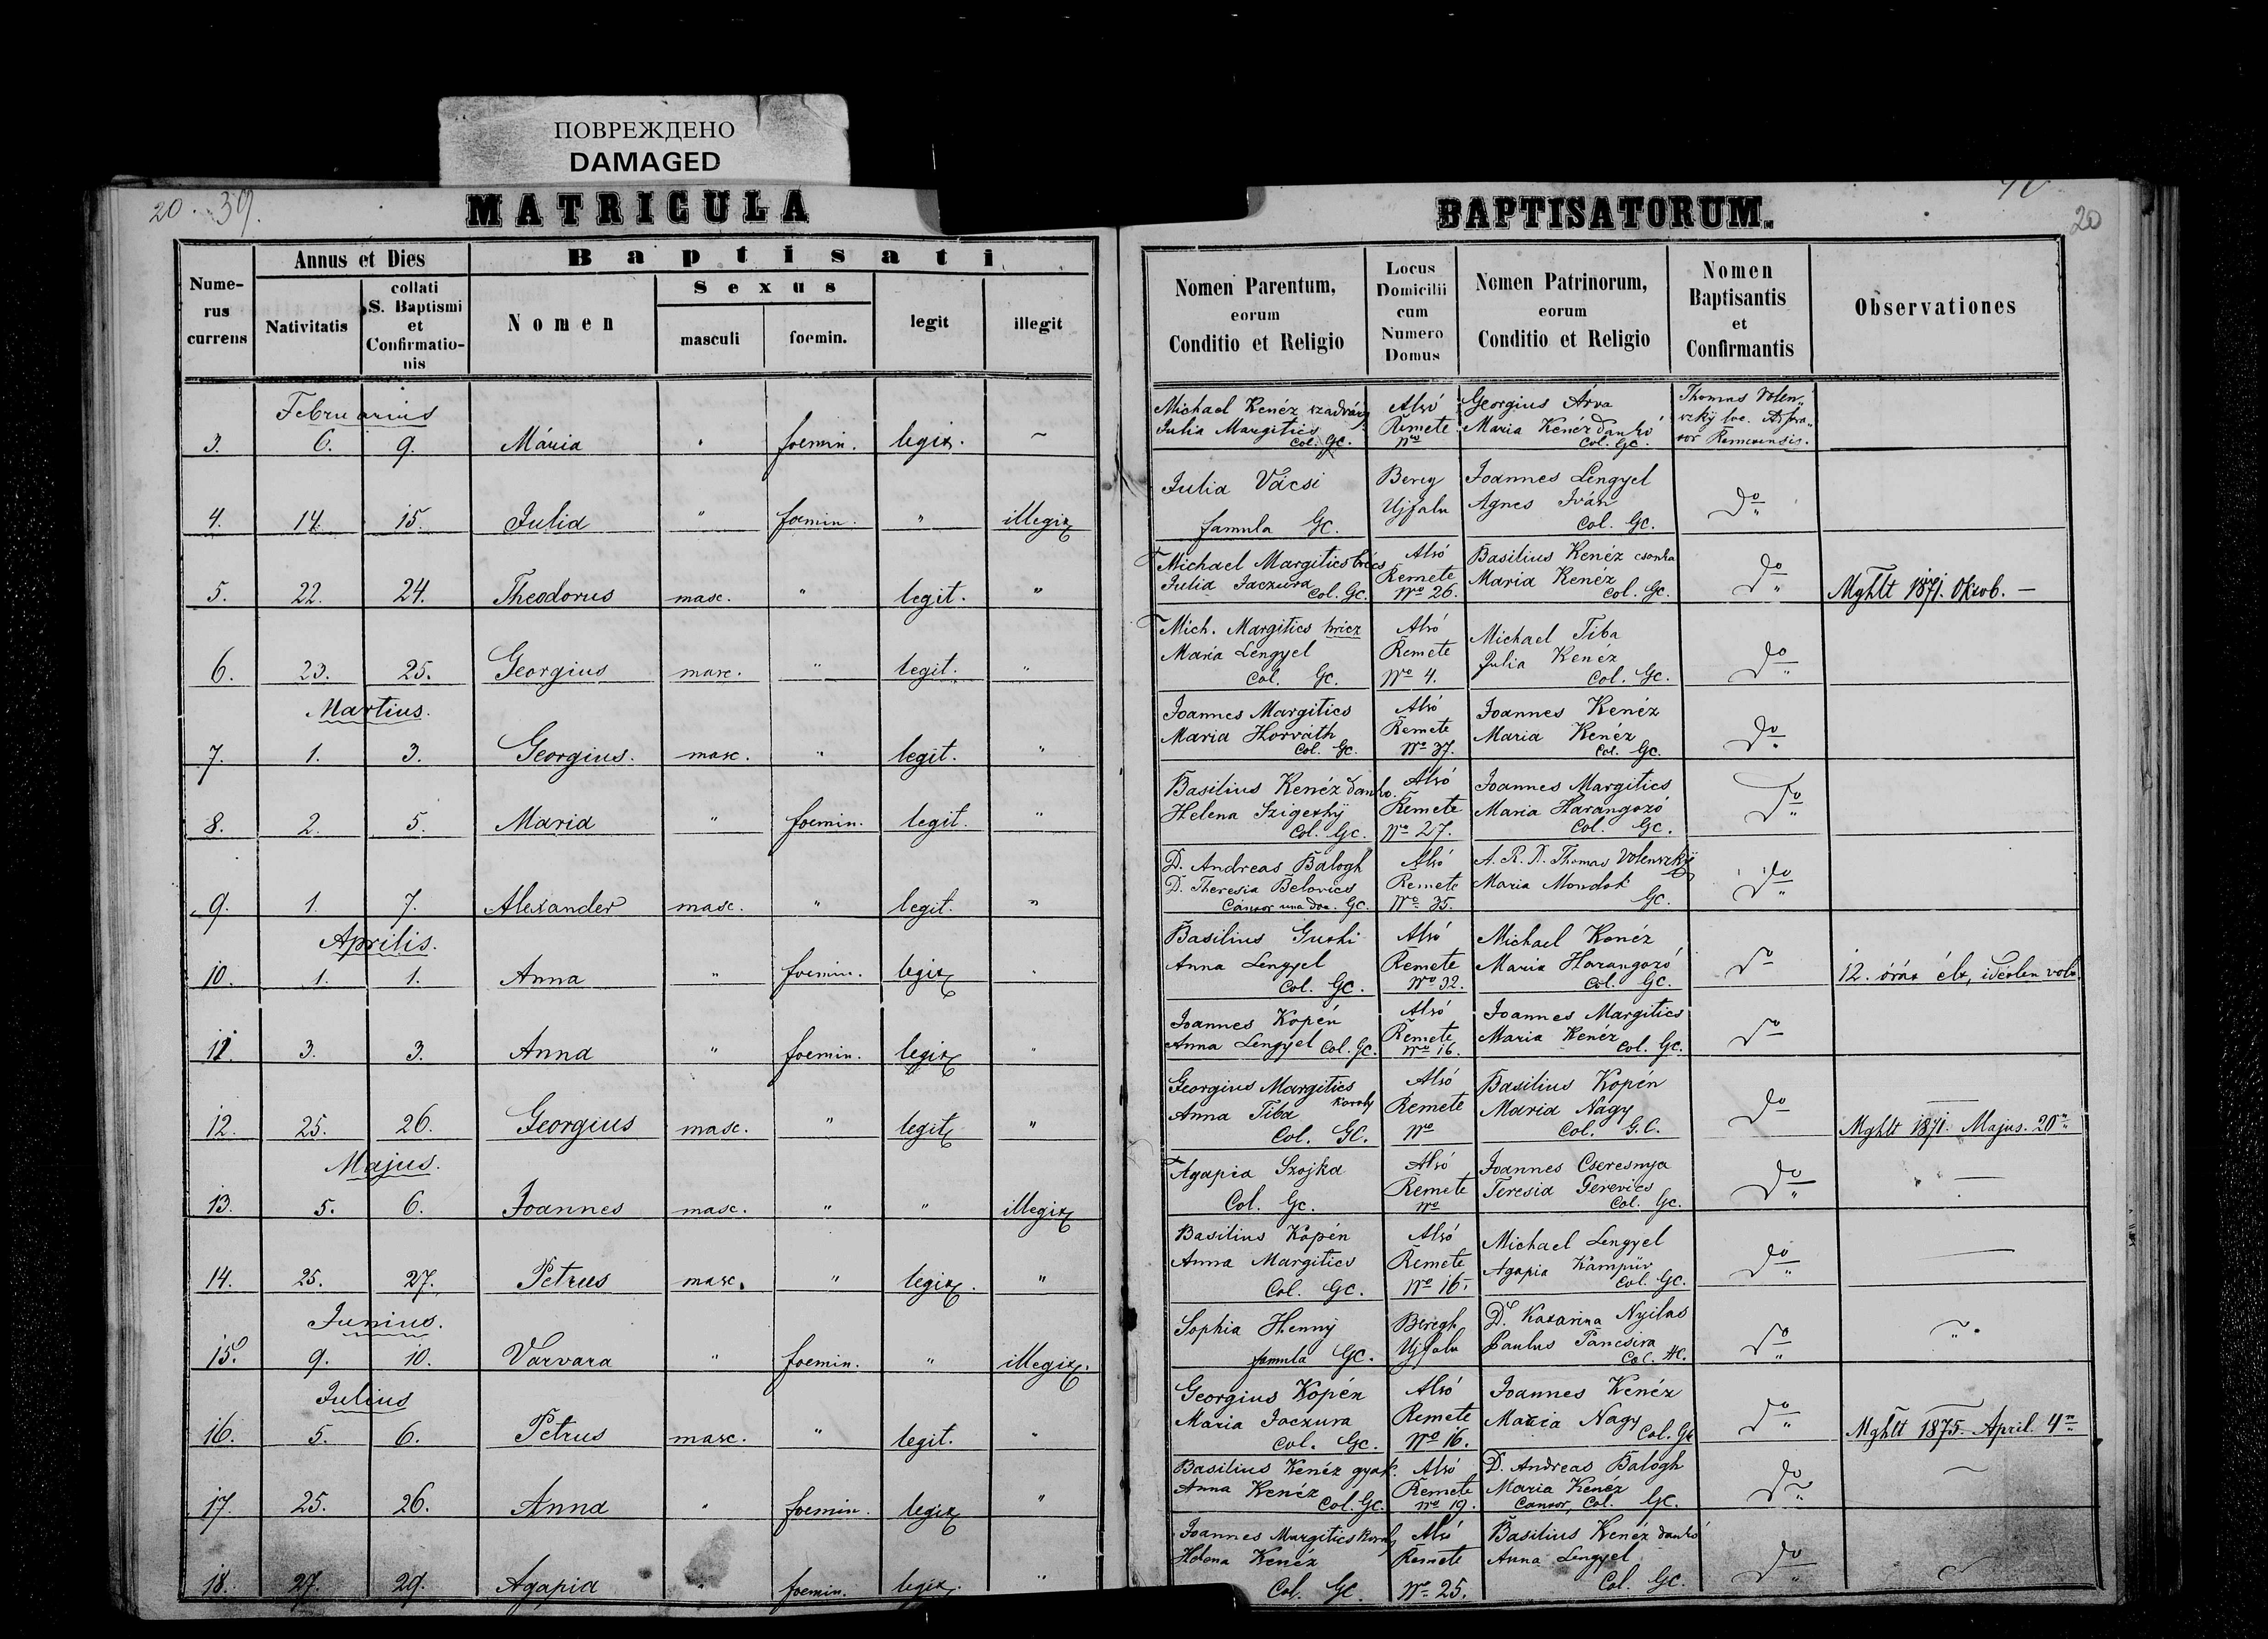 ПОВРЕЖДЕНО
DAMAGED
20. 39.
MATRICULA
Numerus currens
Annus et Dies
Nativitatis
collati S. Baptismi et Confirmationis
Baptisati
Nomen
Sexus
masculi
foemin.
legit
illegit
Februarius
3. 6. 9. Mária " foemin. legit. ~
4. 14. 15. Julia " foemin. " illegit
5. 22. 24. Theodorus masc. " legit. "
6. 23. 25. Georgius masc. " legit. "
Martius.
7. 1. 3. Georgius. masc. " legit. "
8. 2. 5. Maria " foemin. legit. "
9. 1. 7. Alexander masc. " legit. "
Aprilis.
10. 1. 1. Anna " foemin. legit "
11. 3. 3. Anna " foemin. legit "
12. 25. 26. Georgius masc. " legit "
Majus.
13. 5. 6. Joannes masc. " " illegit
14. 25. 27. Petrus masc. " legit. "
Junius.
15. 9. 10. Varvara " foemin. " illegit.
Julius
16. 5. 6. Petrus masc. " legit. "
17. 25. 26. Anna " foemin. legit "
18. 27. 29. Agapia " foemin. legit. "
BAPTISATORUM.
20
Nomen Parentum,
eorum
Conditio et Religio
Locus
Domicilii
cum
Numero
Domus
Nomen Patrinorum,
eorum
Conditio et Religio
Nomen
Baptisantis
et
Confirmantis
Observationes
Michael Kenéz Alsó Georgius Árva Thomas Volen„
Julia Margitics Remete Maria Kenéz dankó szky loc.
Col. Gc. No Col. Gc. Remetensis.
Julia Vácsi Bereg Joannes Lengyel
Ujfalu Agnes Iván do
famula Gc. Col. Gc.
Michael Margitics Alsó Basilius Kenéz csonka
Julia Jaczura Remete Maria Kenéz do
Col. Gc. No 26. Col. Gc. Mghlt 1871. Oktob. —
Mich. Margitics hricz Alsó Michael Tiba
Maria Lengyel Remete Julia Kenéz do
Col. Gc. No 4. Col. Gc.
Joannes Margitics Alsó Joannes Kenéz
Maria Horváth Remete Maria Kenéz do
Col. Gc. No 37. Col. Gc.
Basilius Kenéz danko. Alsó Joannes Margitics
Helena Szigethÿ Remete Maria Harangozó do
Col. Gc. No 27. Col. Gc.
D. Andreas Balogh Alsó A. R. D. Thomas Volenszkÿ
D. Theresia Belovics Remete Maria Mondok do
Cantor una doc. Gc. No 35. Gc.
Basilius Guthi Alsó Michael Kenéz
Anna Lengyel Remete Maria Harangozó do
Col. Gc. No 32. Col. Gc. 12. órát élt, idétlen volt.
Joannes Kopén Alsó Joannes Margitics
Anna Lengyel Col. Gc. Remete Maria Kenéz do
No 16. Col. Gc.
Georgius Margitics Alsó Basilius Kopén
Anna Tiba Remete Maria Nagy do
Col. GC. No Col. G.C. Mghlt 1871. Majus. 20
Agapia Szojka Alsó Joannes Cseresnya
Remete Teresia Gerevics do
Col. Gc. No Col. Gc.
Basilius Kopén Alsó Michael Lengyel
Anna Margitics Remete Agapia do
Col. Gc. No 16. Col. Gc.
Sophia Hennÿ Beregh D. Katarina Nyilas
Ujfalu Paulus Pancsira do
famula Gc. Col.
Georgius Kopén Alsó Joannes Kenéz
Maria Jaczura Remete Maria Nagy do
Col. Gc. No 16. Col. Gc Mghlt 1875. April. 4
Basilius Kenéz Alsó D. Andreas Balogh
Anna Kenéz Remete Maria Kenéz do
Col. Gc. No 19. Cantor, Col. Gc.
Joannes Margitics Alsó Basilius Kenéz dankó
Helena Kenéz Remete Anna Lengyel do
Col. Gc No 25. Col. Gc.